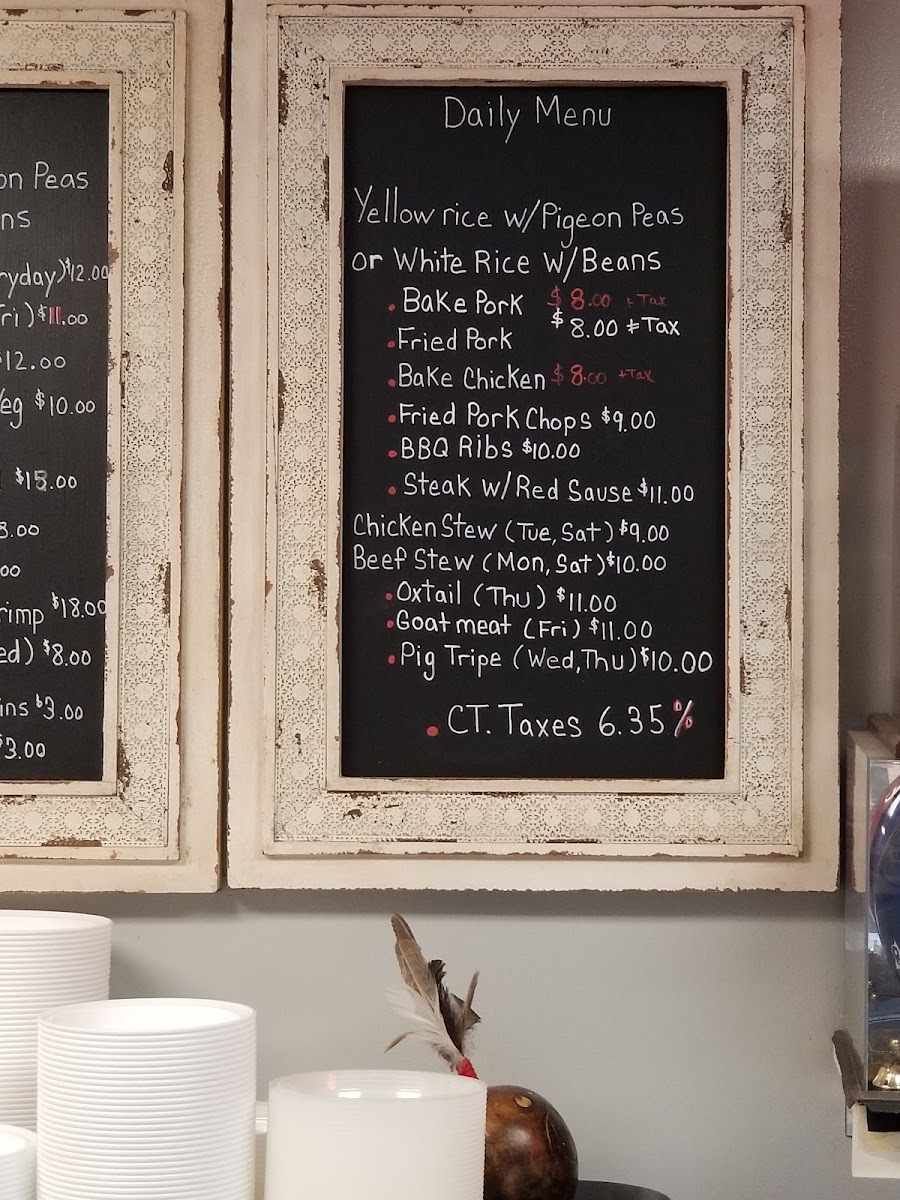 on Peas
ns
ryday) $12.00
ri) $11.00
$12.00
eg $10.00
$15.00
8.00
00
rimp $18.00
ed) $8.00
ins $3.00
$3.00
Daily Menu
Yellow rice w/Pigeon Peas
or White Rice w/Beans
• Bake Pork $8.00 +Tax
• Fried Pork $8.00 +Tax
• Bake Chicken $8.00 +Tax
• Fried Pork Chops $9.00
• BBQ Ribs $10.00
• Steak w/Red Sause $11.00
Chicken Stew (Tue, Sat) $9.00
Beef Stew (Mon, Sat) $10.00
• Oxtail (Thu) $11.00
• Goat meat (Fri) $11.00
• Pig Tripe (Wed,Thu) $10.00
• CT. Taxes 6.35%